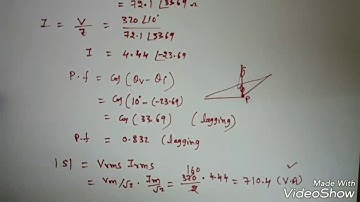 = 72.1 ∠33.69 Ω
I = V/Z = 320 ∠10° / 72.1 ∠33.69
I = 4.44 ∠-23.69
P.f = Cos (θv - θi)
= Cos (10° - (-23.69)
= Cos (33.69) (lagging)
P.f = 0.832 (lagging)
P
|S| = Vrms Irms
= Vm/√2 · Im/√2 = 160 320/2 · 4.44 = 710.4 (V.A) ✓
Made With
VideoShow